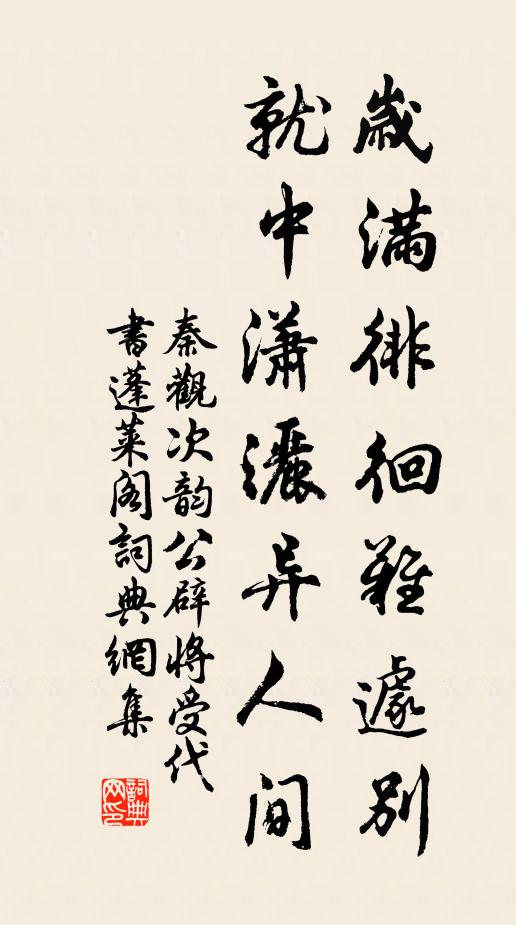 歲滿徘徊難遽別
就中瀟灑异人间
秦觀次韵公辟將受代
書蓬萊阁詞典網集
詞典网印